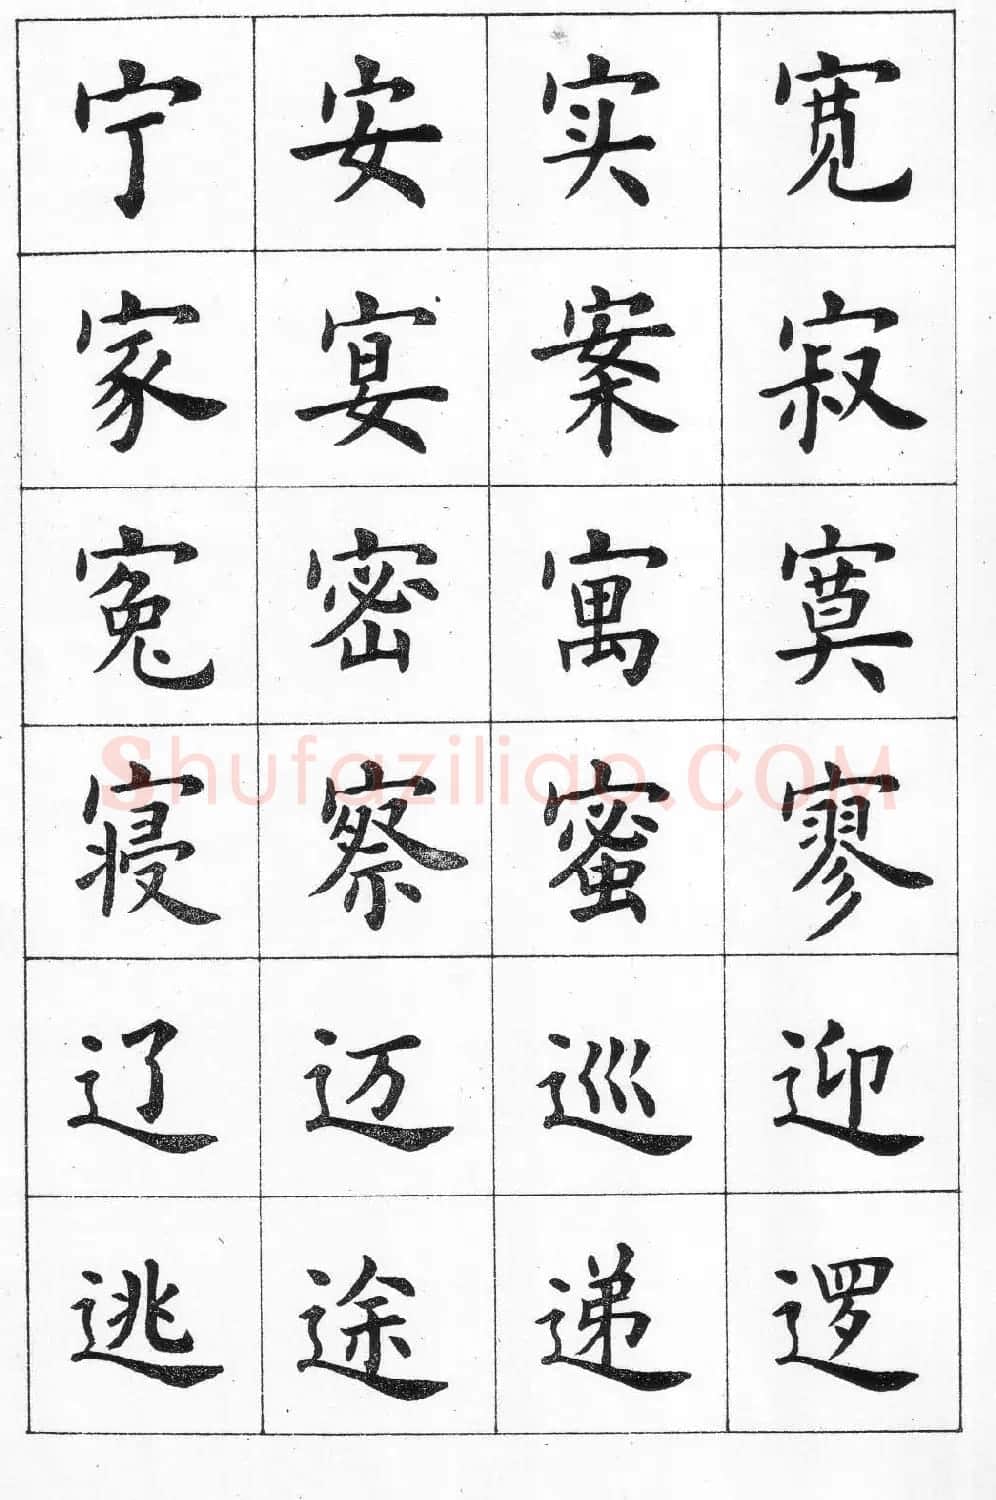 宁安实宽
家宴案寂
寃密寓寞
寝察蜜寥
Shufaziliao.COM
辽迈巡迎
逃途递逻